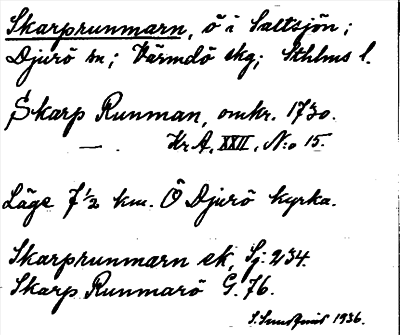 Skarprunmarn, ö i Saltsjön;
Djurö sn; Värmdö skg; Sthlms l.
Skarp Runman, omkr. 1730.
— . Kr A, XXII, N:o 15.
Läge 7 1/2 km. Ö Djurö kyrka.
Skarprunmarn ek, Sj. 234.
Skarp Runmarö G. 76.
1936.